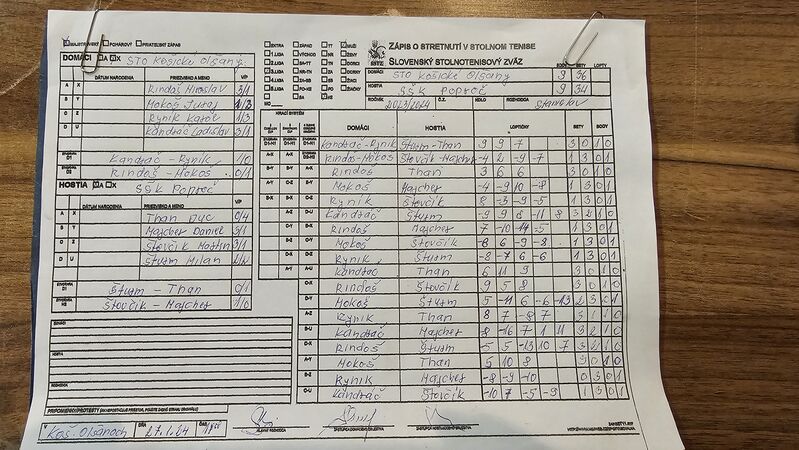 MAJSTROVSKÝ POHÁROVÝ PRIATEĽSKÝ ZÁPAS
ZÁPIS O STRETNUTÍ V STOLNOM TENISE
SLOVENSKÝ STOLNOTENISOVÝ ZVÄZ
DOMÁCI A X STO Košické Oľšany
DÁTUM NARODENIA PRIEZVISKO A MENO V/P
A X Rindoš Miroslav 3/1
B Y Mokoš Juraj 1/3
C Z Rynik Karol 1/3
D U Kandráč Ladislav 3/1
ŠTVORHRA D1 Kandráč - Rynik 1/0
ŠTVORHRA D2 Rindoš - Mokoš 0/1
HOSTIA A X SŠK Poproč
DÁTUM NARODENIA PRIEZVISKO A MENO V/P
A X Than Duc 0/4
B Y Majcher Daniel 3/1
C Z Števčík Martin 3/1
D U Šturm Milan 2/2
Šturm - Than 0/1
Števčík - Majcher 1/0
DOMÁCI STO Košické Oľšany 9 36
HOSTIA SŠK Poproč 9 34
ROČNÍK 2023/2024 Č.Z. KOLO ROZHODCA Stanislav
HRACÍ SYSTÉM
DOMÁCI HOSTIA LOPTIČKY SETY BODY
Kandráč-Rynik Šturm-Than 9 9 7 3 0 1 0
Rindoš-Mokoš Števčík-Majcher -4 2 -9 -7 1 3 0 1
Rindoš Than 3 6 6 3 0 1 0
Mokoš Majcher -4 -9 10 -8 1 3 0 1
Rynik Števčík 8 -3 -9 -5 1 3 0 1
Kandráč Šturm -9 9 8 -11 8 3 2 1 0
Rindoš Majcher 7 -10 -14 -5 1 3 0 1
Mokoš Števčík -8 6 -9 -8 1 3 0 1
Rynik Šturm -8 -7 6 -6 1 3 0 1
Kandráč Than 6 11 9 3 0 1 0
Rindoš Števčík 9 5 8 3 0 1 0
Mokoš Šturm 5 -11 6 -6 -13 2 3 0 1
Rynik Than 8 7 -8 7 3 1 0
Kandráč Majcher 8 -16 7 1 11 3 1 0
Rindoš Šturm -5 5 -13 10 7 3 2 1 0
Mokoš Than 5 10 8 3 0 1 0
Rynik Majcher -8 -9 -10 0 3 0 1
Kandráč Števčík -10 7 -5 -9 1 3 0 1
DOMÁCI
HOSTIA
ROZHODCA
V Koš. Oľšanoch DŇA 27.1.04
HLAVNÝ ROZHODCA
ZÁSTUPCA DOMÁCEHO DRUŽSTVA
ZÁSTUPCA HOSŤUJÚCEHO DRUŽSTVA